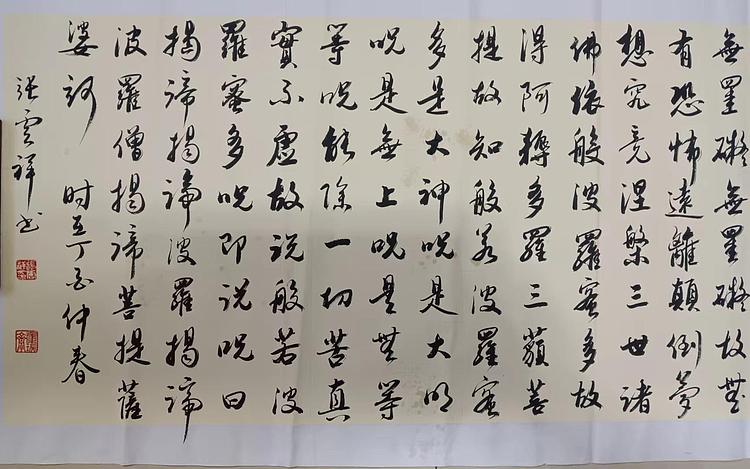 無罣礙無罣礙故無
有恐怖遠離顛倒夢
想究竟涅槃三世諸
佛依般波羅蜜多故
得阿耨多羅三藐菩
提故知般若波羅蜜
多是大神呪是大明
呪是無上呪是無等
等呪能除一切苦真
實不虛故說般若波
羅蜜多呪即說呪曰
揭諦揭諦波羅揭諦
波羅僧揭諦菩提薩
婆訶 时在丁酉仲春
张雲祥书